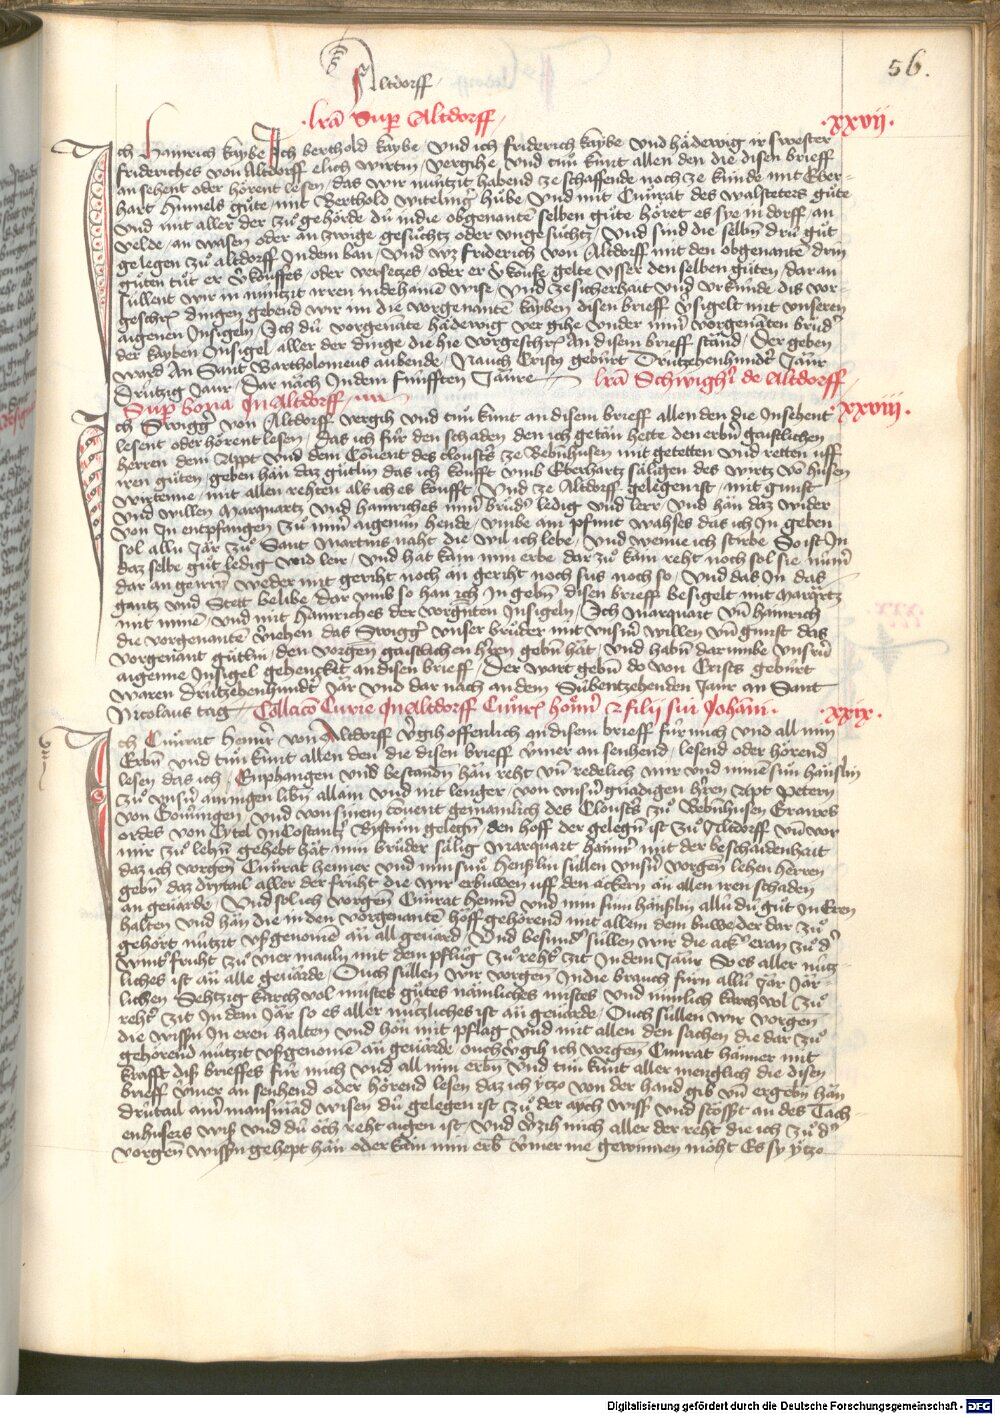 Altdorff
56.
lrã Sup Altdorff
xxvij.
Ich Hainrich kaybe Ich berthold kaybe / Und ich friderich kaybe und hädewig ir swester
frideriches von Altdorff elich wirtin / vergihe und tuͦn kunt allen den die disen brieff
an sehent oder hörent lesen / das wir nützit habend ze schaffende noch ze künde mit Eber-
hart Hinnels gute mit Berthold witelings hube und mit Cuͦnrat des walsteters gute
Und mit aller der zuͦ gehörde du in die obgenante selben gute höret es sye in dorff / an
velde / an wasen oder an zwige gesuchtz oder ungesuchtz / Und sind die selbn dru gut
gelegen zuͦ altdorff In dem ban / Und wz friderich von Altdorff mit den obgenante drin
guten tut er v̊kouffes oder versetzes / oder er v̊koufe gelte usser den selben guten / dar an
sullent wir in nützit irren in dehaine wise / Und ze sicherhait und urkunde dis vor-
geschrꝭ dingen gebend wir im die vorgenante kayben disen brieff v̊sigelt mit unseren
aigenen Insigeln / Ich du vorgenãte hädewig vergihe under miner vorgenãten bruder
der kayben Insigel aller der dinge die hie vorgeschrꝭ An disem brieff stand / Der geben
ward An Sant Bartholomeus aubende / Nauch Cristy geburt Drutzehenhundert Jaur
Drißig Jaur / Dar nach In dem funfften Jaure lrã Schwigheri de Altdorff
Sup bona In Altdorff
xxviij.
Ich Swigger von Altdorff vergih und tuͦn kunt an disem brieff allen den die In sehent
lesent oder hörent lesen / Das ich fur den schaden den ich getan hette den erbern gaistlichen
herren dem Appt und dem Couent des closters ze Bebenhusen mit getetten und retten uff
iren guten / geben hän daz gutlin das ich koufft umb Eberhartz säligen des wirtz vo husen
wirtenne / mit allen rehten als ich es koufft / Und ze Altdorff gelegen ist / mit gunst
und willen Marquartz und Hainriches miner bruder ledig und lere / Und hän daz wider
von In entpfangen zuͦ miner aigenun hende / umbe ain pfunt wahses das ich In geben
sol allu Jär zuͦ Sant Martins naht die wil ich lebe / und wenne ich stirbe So ist In
daz selbe gut ledig und ler / und hat kain min erbe dar zuͦ kain reht noch sol sie nimer
dar an geirren weder mit geriht noch an geriht noch sus noch so / Und das In das
gantz und Stett belibe / dar umb so han ich In geben disen brieff besigelt mit Marqrtz
mit mine und mit Hainriches der vorgnten Insigeln / Ich Marquart und hainrich
die vorgenante v̊iehen das Swigger unser bruder mit unserm willen und gunst das
vorgenant gutlin / den vorgen gaistlichen herren geben hat / und haben dar umbe unsru
aigenne Insigel gehencket an disen brieff / Der wart geben do von Crists geburt
waren drutzehenhundert Jar und dar nach an dem Subentzehenden Jaur an Sant
Nicolaus tag Collacõ Curie In Altdorff Cunrꝭ honer & filij sui Johañ.
xxix.
Ich Cuͦnrat henner von Altdorff v̊gih offenlich an disem brieff fur mich und all min
Erben und tuͦn kunt allen den die disen brieff ymer an senhend / lesend oder hörend
lesen das ich Enphangen und bestanden hän reht und redelich mir und minem sun hänslin
zuͦ unsern ainigen liben allain und nit lenger / von unserm gnädigen herren Apt Petern
von Gouningen / und von sinem couent gemainlich des Closters zuͦ Bebenhusen Grawes
ordes von Cytel In Costantzer Bystum gelegen / den hoff der gelegen ist zuͦ Altdorff und vor
mir zuͦ lehen gehebt hät min bruder sälig Marquart hainer / mit der beschaidenhait
daz ich vorgen Cuͦnrat henner und min sun Henßlin sullen unsern vorgen lehen herren
geben daz drytail aller der fruht die wir erbuwen uff den äckern an allen iren schaden
an geuärde / Und sol ich vorgen Cuͦnrat Henner und min sun hänßlin allu du gut In Eren
halten und hän die in den vorgenante hoff gehörend mit allem dem buwe der dar zuͦ
gehört nutzit ußgenome an all geuärd / Und besunder sullen wir die acker eran zuͦ der
winter fruht zuͦ vier mauln mit dem pflug zuͦ rehter zit In dem Jaur So es aller nutz-
liches ist an alle geuärde / Ouch sullen wir vorgen In die brauch furn allu Jar Jar-
lichen Sehtzig karch vol mistes gutes nämliches mistes und nämlich karch vol zuͦ
rehter zit In dem Jär so es aller nutzliches ist an geuärde / Ouch sullen wir vorgen
die wisen In eren halten und hon mit pflag und mit allen den sachen die dar zuͦ
gehörend nutzit ußgenome an geuärde / ouch v̊gih ich vorgen Cunrat Hänner mit
krafft diß brieffes fur mich und all min erben und tun kunt aller menglich die disen
brieff ymer an senhend oder hörend lesen daz ich ytzo von der hand gib und ergeben hän
drutail ains mansmäd wisen du gelegen ist zuͦ der aych wiß und stosset an des Tach-
enhusers wiß und du och reht aigen ist / und v̊zih mich aller der reht die ich zuͦ der
vorgen wissen gehept hän oder kain min erb ymer me gewinnen möht Es sy ytzo
Digitalisierung gefördert durch die Deutsche Forschungsgemeinschaft - DFG